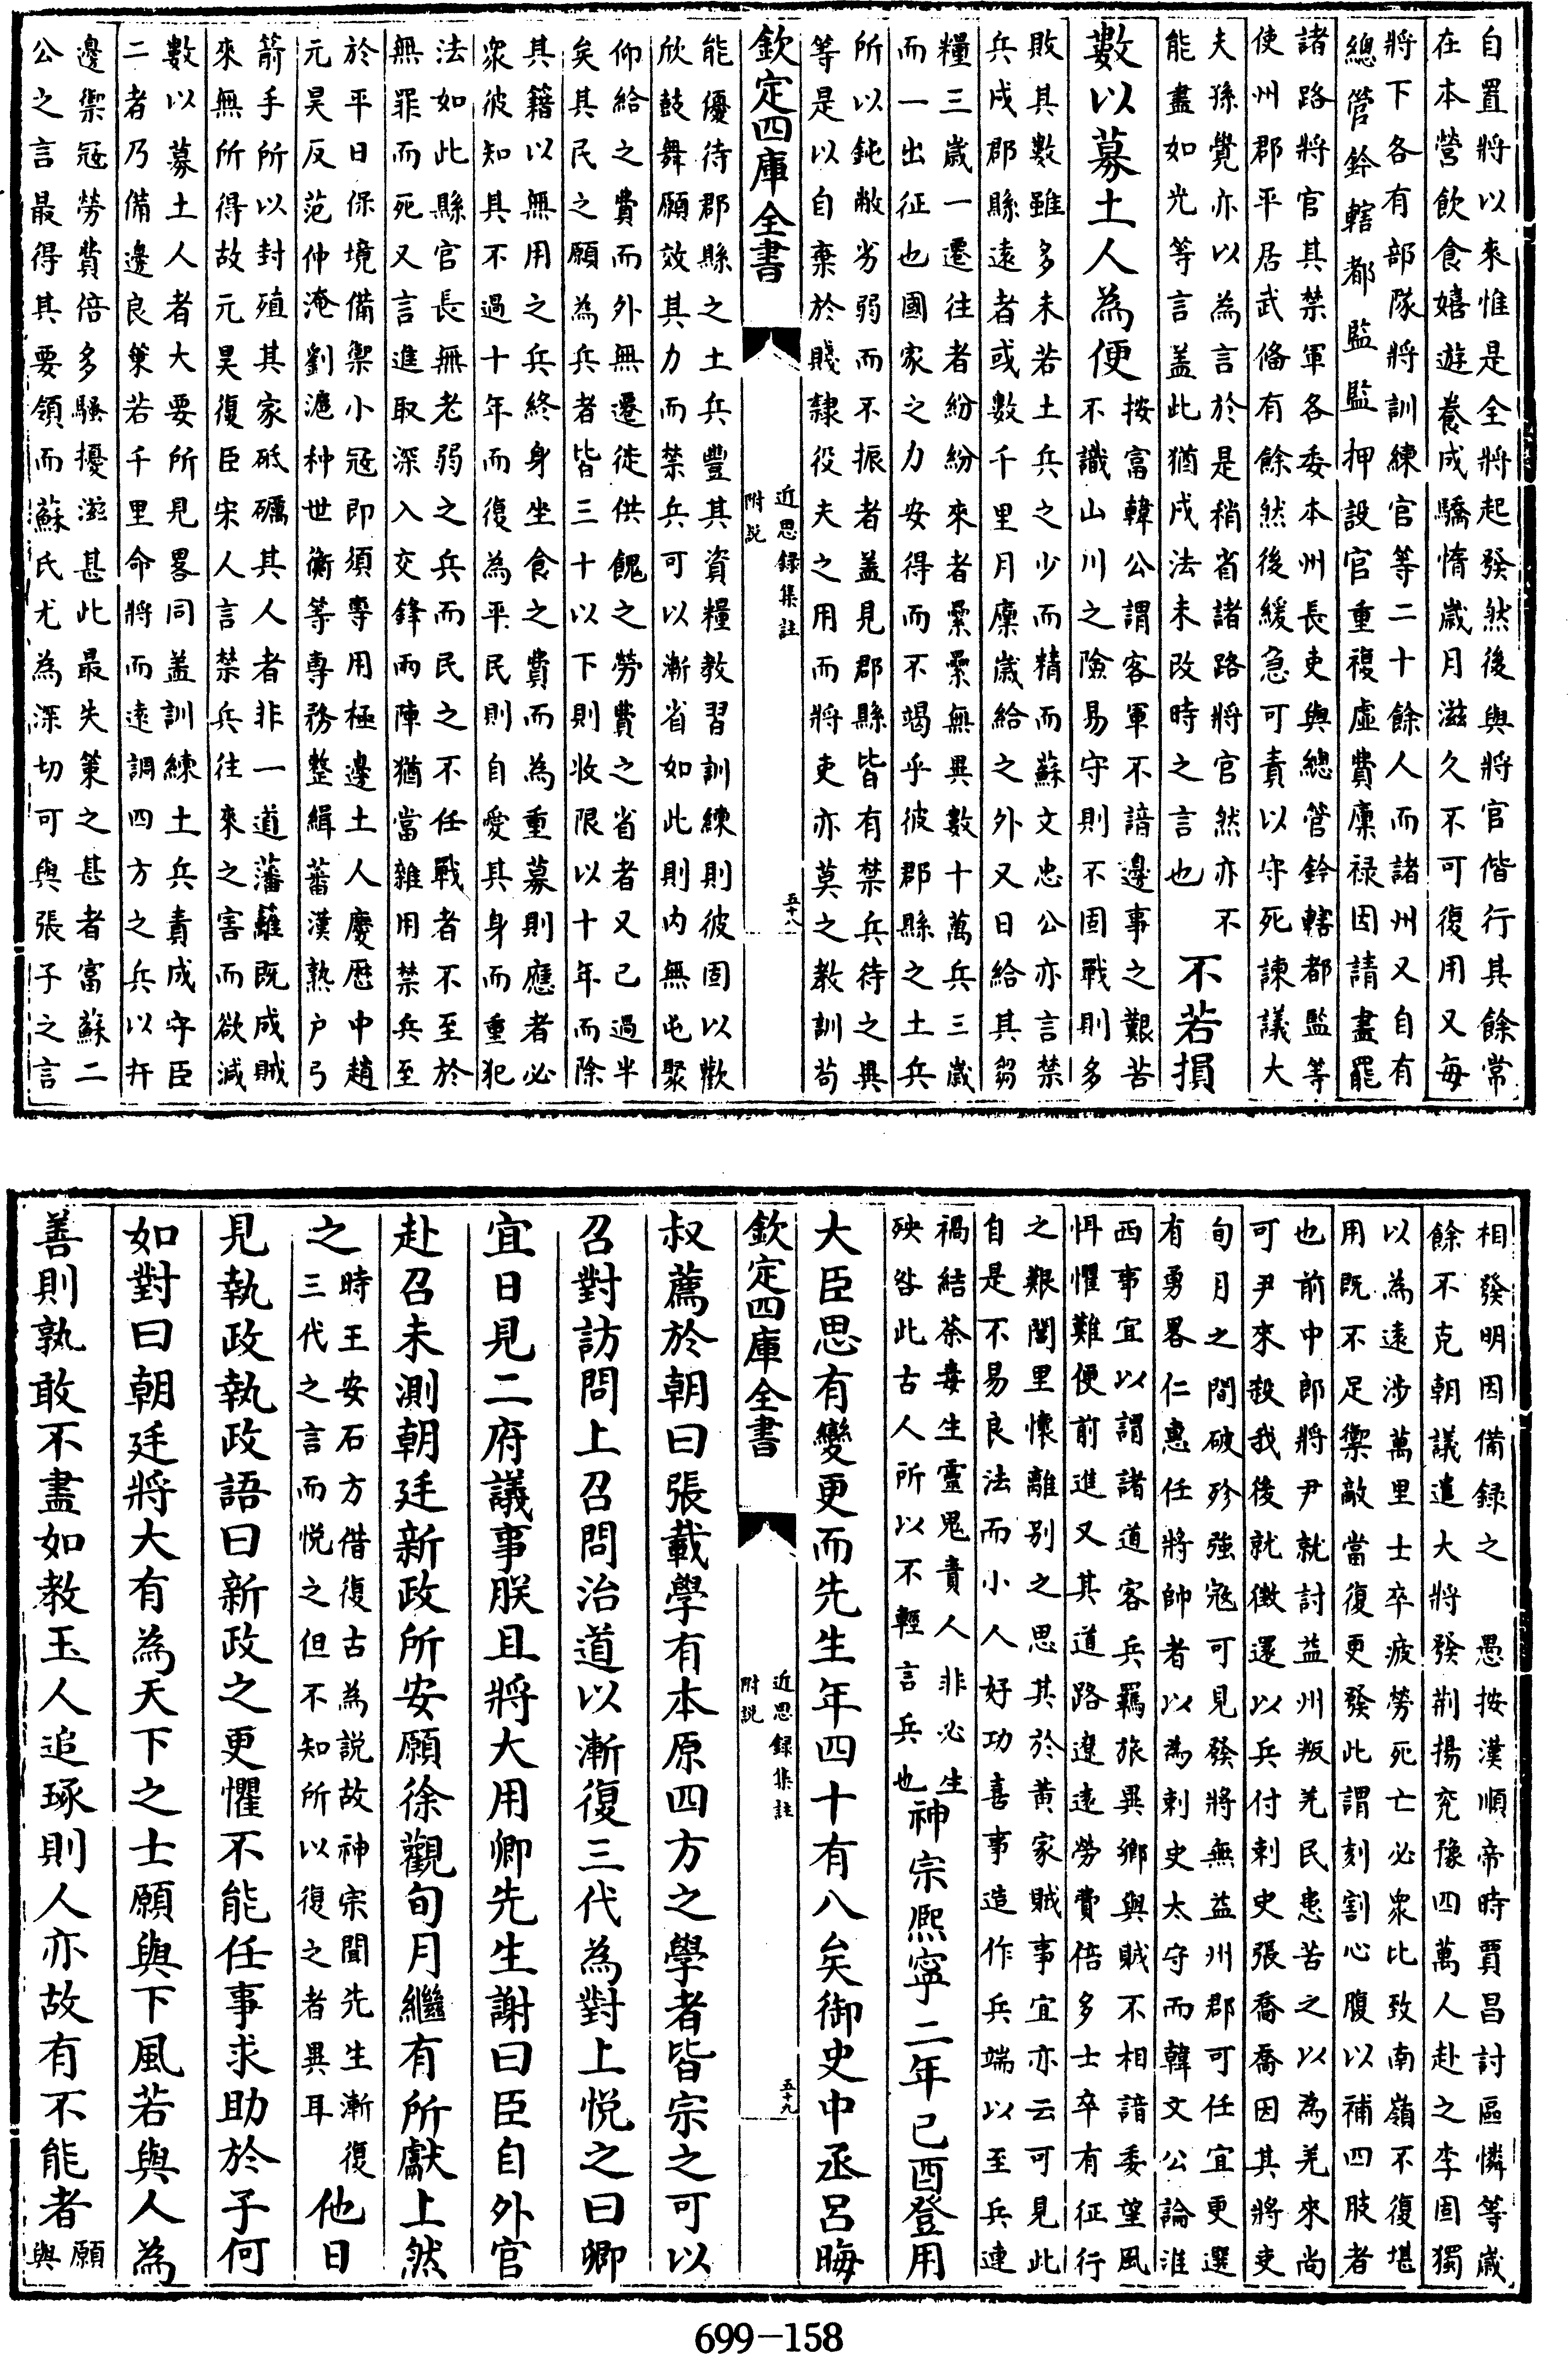 自置將以來惟是全將起發然後與將官偕行其餘常
在本營飲食嬉遊養成驕惰歲月滋久不可復用又每
將下各有部隊將訓練官等二十餘人而諸州又自有
總管鈐轄都監監押設官重複虛費廩禄因請盡罷
諸路將官其禁軍各委本州長吏與總管鈐轄都監等
使州郡平居武俻有餘然後緩急可責以守死諫議大
夫孫覺亦以為言於是稍省諸路將官然亦不
能盡如光等言盖此猶戍法未改時之言也
不若損
數以募土人為便
按富韓公謂客軍不諳邊事之艱苦
不識山川之險易守則不固戰則多
敗其數雖多未若土兵之少而精而蘇文忠公亦言禁
兵戍郡縣遠者或數千里月廪歲給之外又日給其芻
糧三歲一遷往者紛紛來者纍纍無異數十萬兵三歲
而一出征也國家之力安得而不竭乎彼郡縣之土兵
所以鈍敝劣弱而不振者盖見郡縣皆有禁兵待之異
等是以自棄於賤隸役夫之用而將吏亦莫之教訓茍
欽定四庫全書
近思録集註
附説
五十八
能優待郡縣之土兵豐其資糧教習訓練則彼固以歡
欣鼓舞願效其力而禁兵可以漸省如此則内無屯聚
仰給之費而外無遷徙供餽之勞費之省者又已過半
矣其民之願為兵者皆三十以下則收限以十年而除
其籍以無用之兵終身坐食之費而為重募則應者必
衆彼知其不過十年而復為平民則自愛其身而重犯
法如此縣官長無老弱之兵而民之不任戰者不至於
無罪而死又言進取深入交鋒兩陣猶當雜用禁兵至
於平日保境備禦小冦即須專用極邊土人慶厯中趙
元昊反范仲淹劉滬种世衡等専務整緝蕃漢熟户弓
箭手所以封殖其家砥礪其人者非一道藩籬既成賊
來無所得故元昊復臣宋人言禁兵往來之害而欲減
數以募土人者大要所見畧同盖訓練土兵責成守臣
二者乃備邊良策若千里命將而遠調四方之兵以扞
邊禦冦勞費倍多騷擾滋甚此最失策之甚者富蘇二
公之言最得其要領而蘇氏尤為深切可與張子之言
相發明因備録之　愚按漢順帝時賈昌討區憐等歲
餘不克朝議遣大將發荆揚兖豫四萬人赴之李固獨
以為遠涉萬里士卒疲勞死亡必衆比致南嶺不復堪
用既不足禦敵當復更發此謂刻割心腹以補四肢者
也前中郎將尹就討益州叛羌民患苦之以為羌來尚
可尹來殺我後就徴還以兵付刺史張喬喬因其將吏
旬月之間破殄強冦可見發將無益州郡可任宜更選
有勇畧仁惠任將帥者以為刺史太守而韓文公論淮
西事宜以謂諸道客兵羈旅異鄉與賊不相諳委望風
恇懼難便前進又其道路遼遠勞費倍多士卒有征行
之艱閭里懷離别之思其於黄家賊事宜亦云可見此
自是不易良法而小人好功喜事造作兵端以至兵連
禍結荼毒生靈鬼責人非必生
殃咎此古人所以不輕言兵也
神宗熈寧二年己酉登用
大臣思有變更而先生年四十有八矣御史中丞吕晦
欽定四庫全書
近思録集註
附説
五十九
叔薦於朝曰張載學有本原四方之學者皆宗之可以
召對訪問上召問治道以漸復三代為對上悦之曰卿
宜日見二府議事朕且將大用卿先生謝曰臣自外官
赴召未測朝廷新政所安願徐觀旬月繼有所獻上然
之
時王安石方借復古為説故神宗聞先生漸復
三代之言而悦之但不知所以復之者異耳
他日
見執政執政語曰新政之更懼不能任事求助於子何
如對曰朝廷將大有為天下之士願與下風若與人為
善則孰敢不盡如教玉人追琢則人亦故有不能者
願
與
699-158